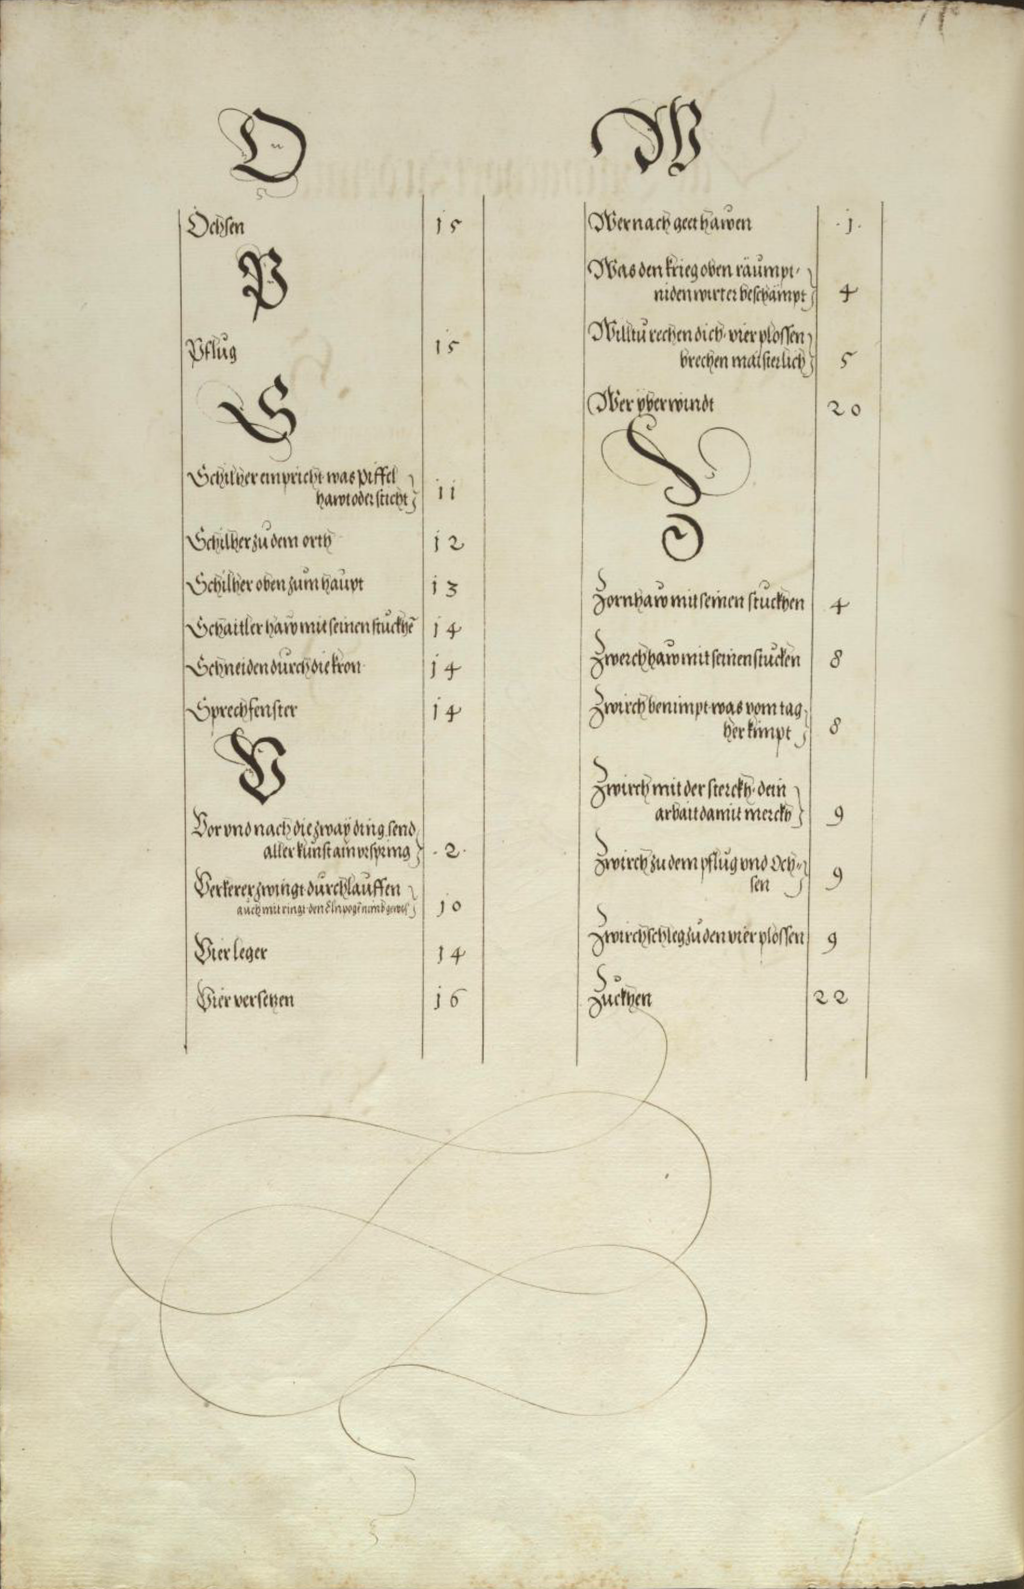 O
Ochsen 15
P
Pflug 15
S
Schilher einpricht was Piffel
hawt oder sticht 11
Schilher zu dem orth 12
Schilher oben zum haupt 13
Schaitler haw mit seinen stuckhē 14
Schneiden durch die kron 14
Sprechfenster 14
V
Vor vnd nach die zway ding send
aller kunst ain vrspring .2.
Verkerer zwingt durchlauffen
auch mit ringt den Elnpogē nimb gewis 10
Vier leger 14
Vier versetzen 16
W
Wer nach geet hawen .1.
Was den krieg oben räumpt
niden wirt er beschämpt 4
Willtu rechen dich vier plossen
brechen maisterlich 5
Wer yberwindt 20
Z
Zornhaw mit seinen stuckhen 4
Zwerchhaw mit seinen stucken 8
Zwirch benimpt was vom tag
her kimpt 8
Zwirch mit der sterckh dein
arbait damit merckh 9
Zwirch zu dem pflug vnd Och-
sen 9
Zwirch schleg zu den vier plossen 9
Zuckhen 22